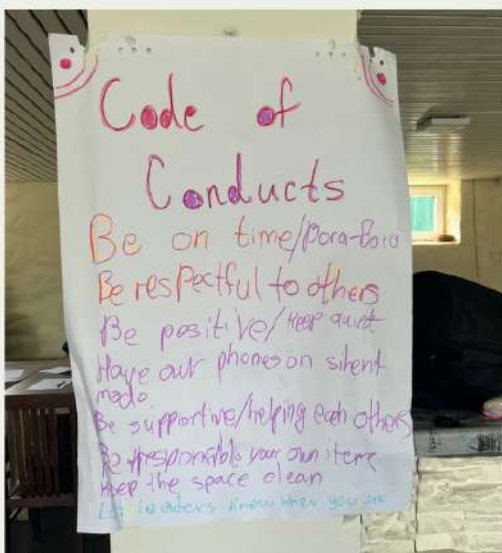 Code of
Conducts
Be on time/Pora-Bora
Be respectful to others
Be positive/keep quiet
Have our phones on silent
mode
Be supportive/helping each others
Be responsible your own items
keep the space clean
Let leaders know when you are